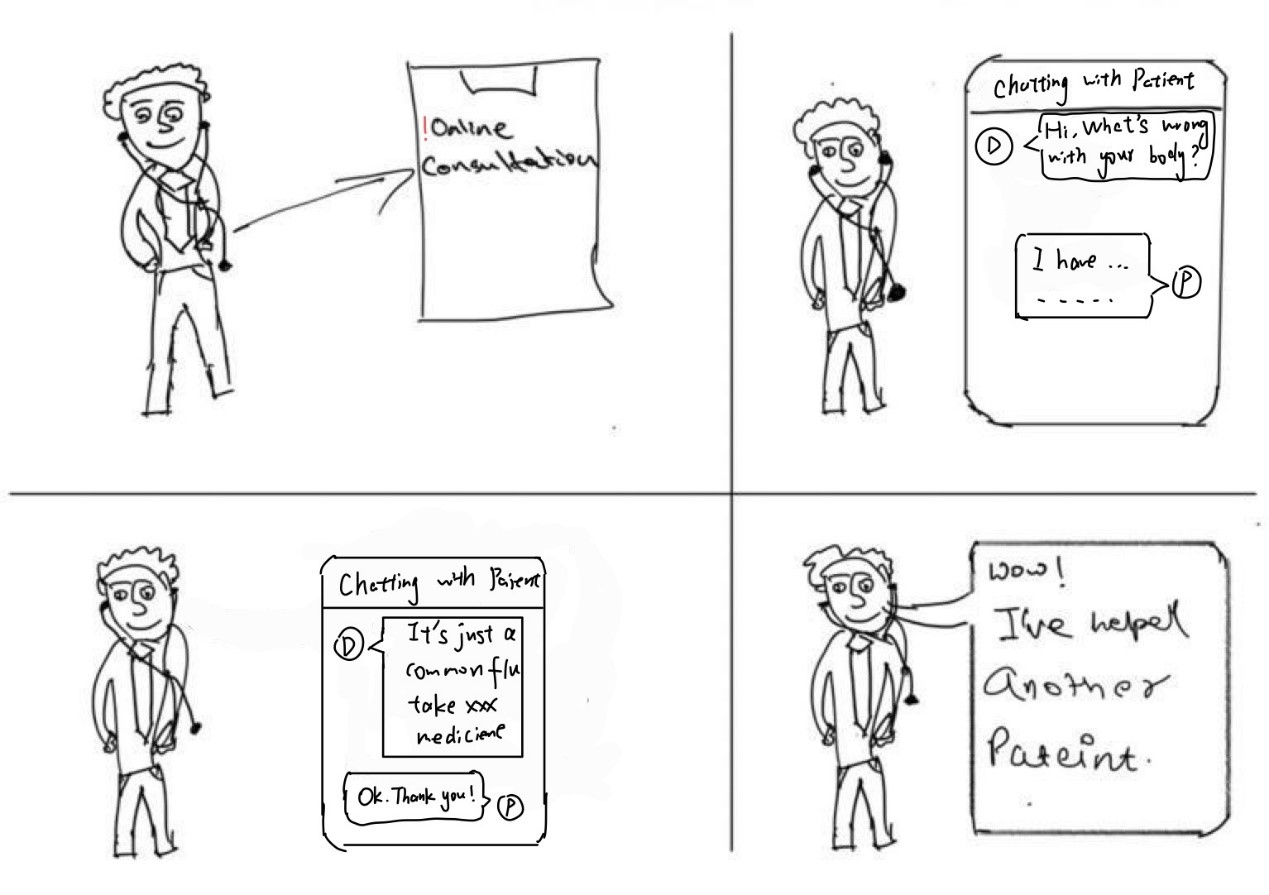 !Online
Consultation
Chatting with Patient
D
Hi, What's wrong
with your body?
I have ...
- - - - -
P
Chatting with Paient
D
It's just a
common flu
take xxx
medicient
Ok. Thank you!
P
wow!
I've helped
Another
Pateint.